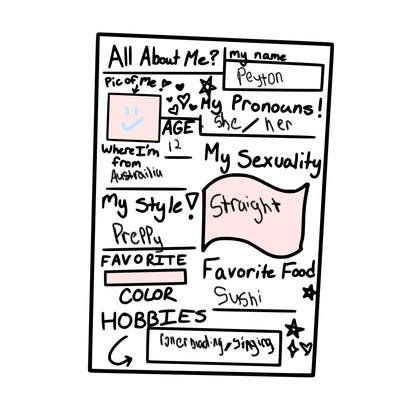 All About Me?
my name
Peyton
Pic of Me!
My Pronouns!
she/her
AGE
12
Where I'm
from
Austrailia
My Sexuality
Straight
My Style!
Preppy
FAVORITE
COLOR
Favorite Food
Sushi
HOBBIES
singing